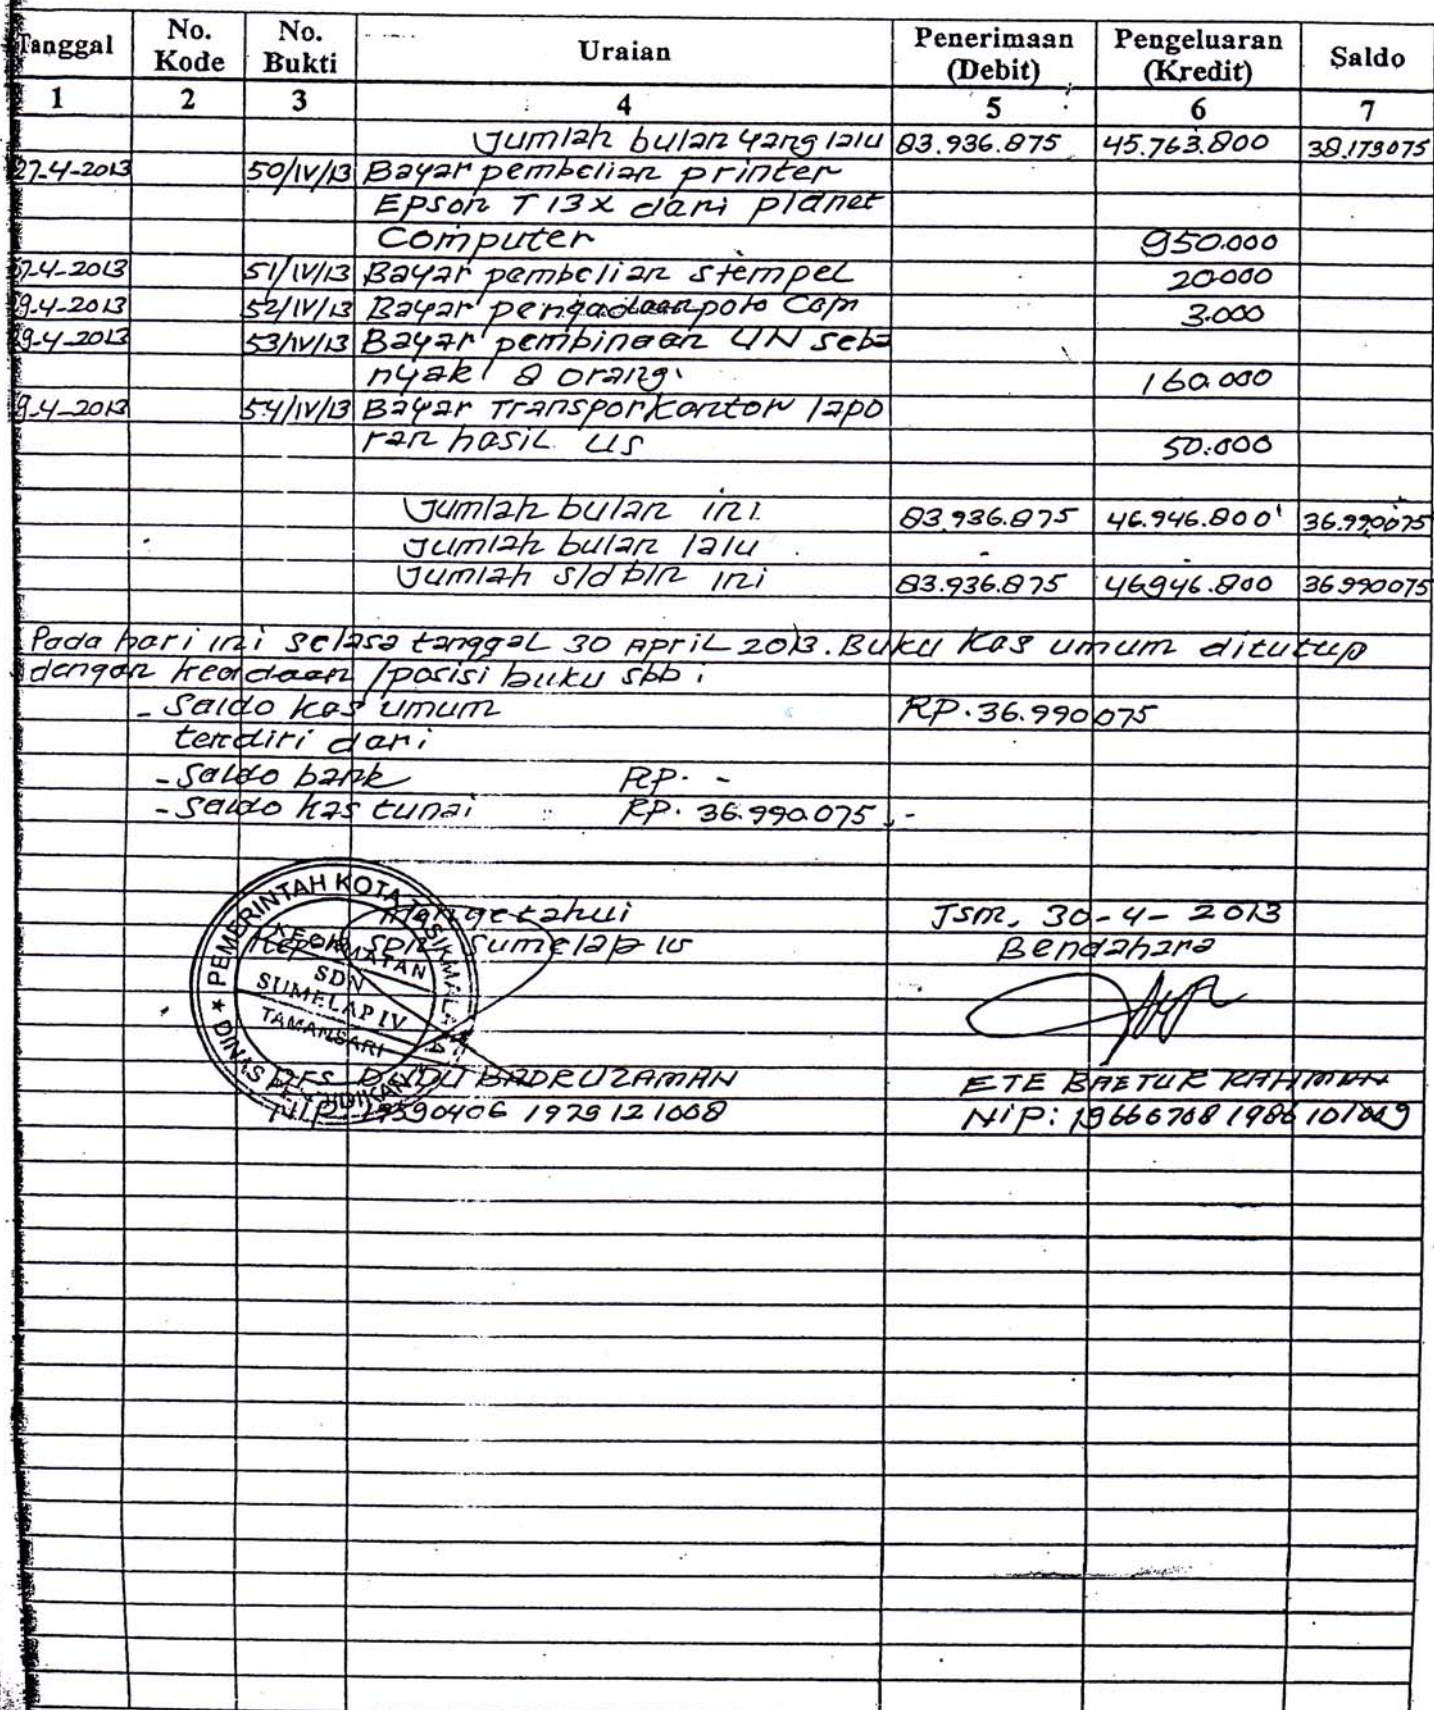 Tanggal No. Kode No. Bukti Uraian Penerimaan (Debit) Pengeluaran (Kredit) Saldo
1 2 3 4 5 6 7
Jumlah bulan yang lalu 83.936.875 45.763.800 38.173075
27-4-2013 50/IV/13 Bayar pembelian printer
Epson T 13x dari planet
Computer 950.000
7-4-2013 51/IV/13 Bayar pembelian stempel 20.000
9-4-2013 52/IV/13 Bayar pengadaan poto Copi 3.000
9-4-2013 53/IV/13 Bayar pembinaan UN seba
nyak 8 orang. 160.000
9-4-2013 54/IV/13 Bayar Transpor kantor lapo
ran hasil US 50.000
Jumlah bulan ini 83.936.875 46.946.800 36.990075
Jumlah bulan lalu - -
Jumlah s/d bln ini 83.936.875 46946.800 36.990075
Pada hari ini Selasa tanggal 30 April 2013. Buku Kas umum ditutup
dengan keadaan/posisi buku sbb:
- Saldo kas umum RP. 36.990.075
terdiri dari
- Saldo bank RP. -
- Saldo kas tunai RP. 36.990.075,-
Mengetahui Tsm, 30-4-2013
Kepala SDN Sumelap IV Bendahara
PEMERINTAH KOTA TASIKMALAYA
KECAMATAN
SDN
SUMELAP IV
TAMANSARI
DINAS PENDIDIKAN
BADRUZAMAN ETE BAETUR RAHMAN
NIP 19590406 1979121008 NIP: 19660708 1986 101009